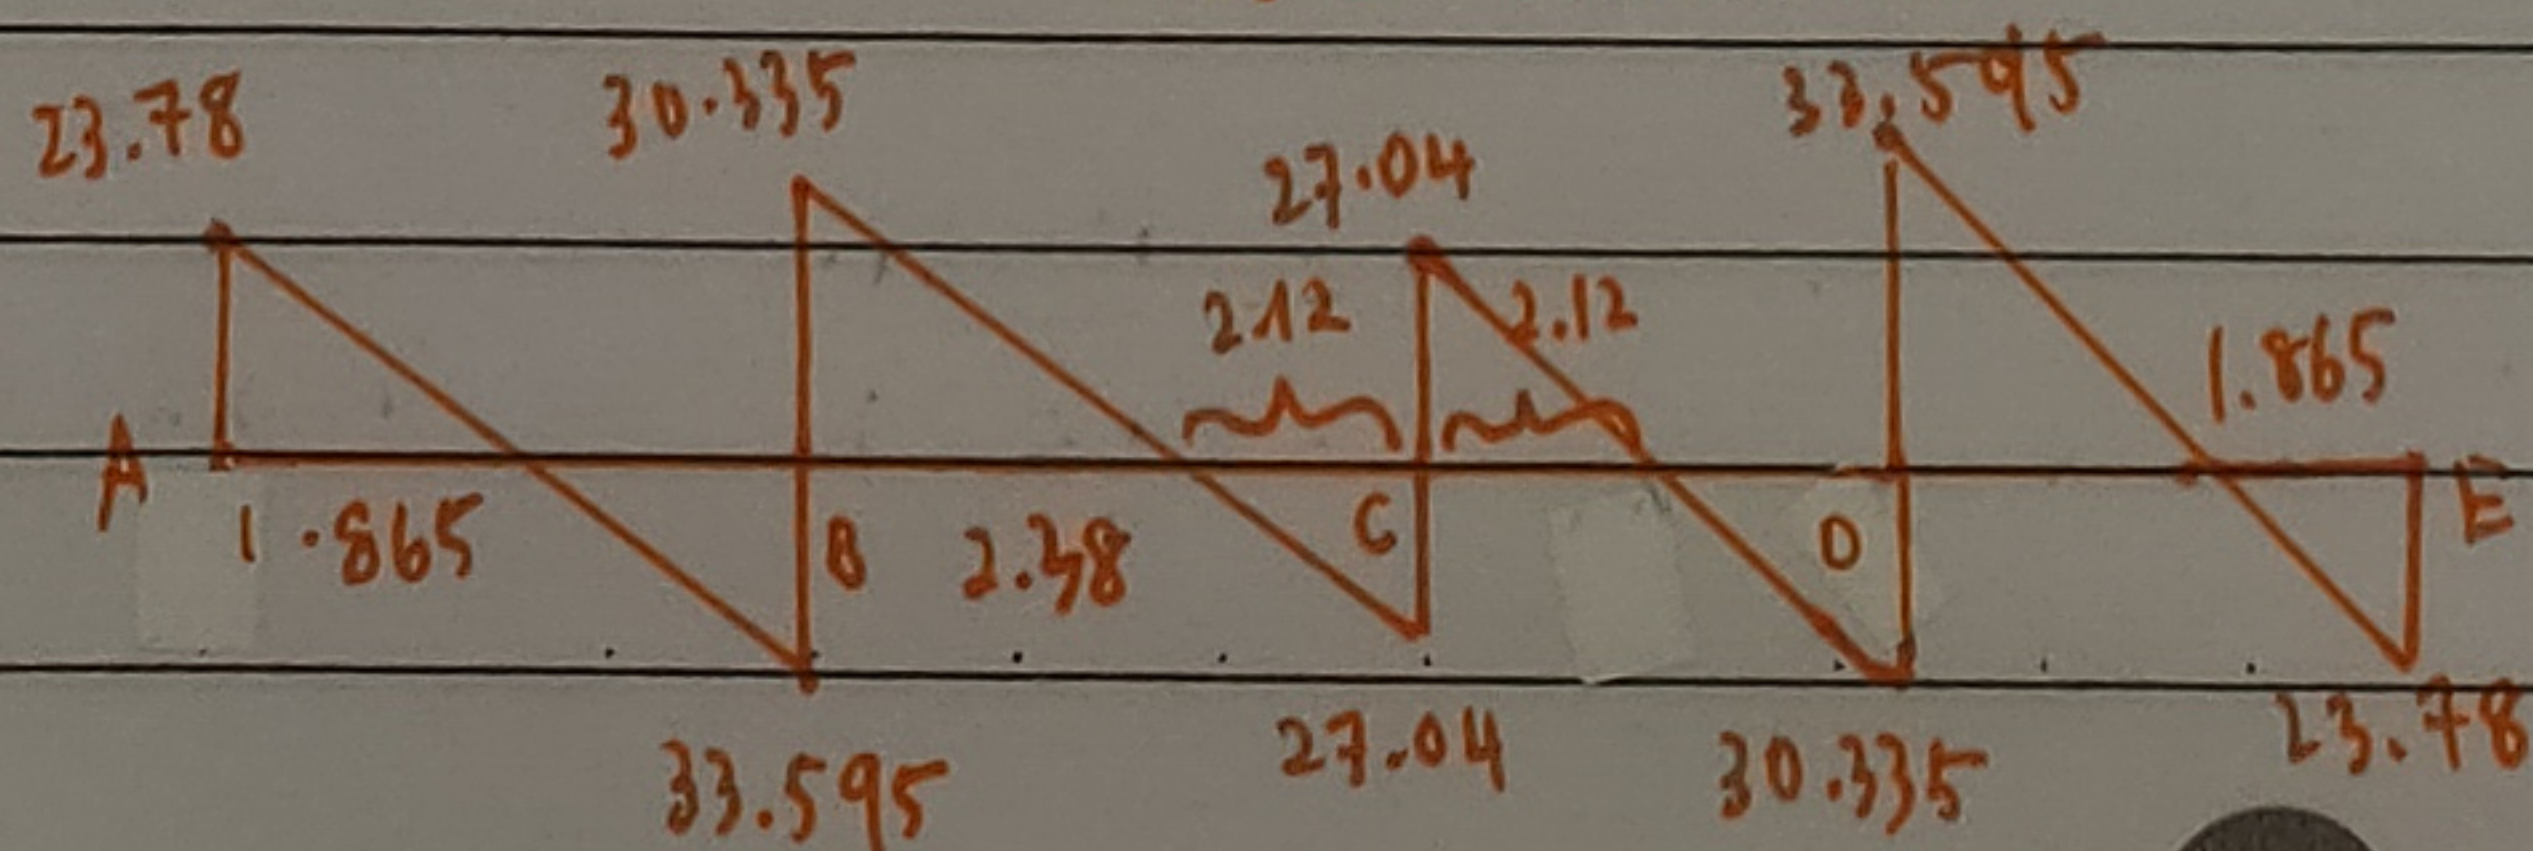 23.78 30.335 27.04 33.595
2.12 2.12 1.865
A 1.865 B 2.38 C D E
33.595 27.04 30.335 23.78